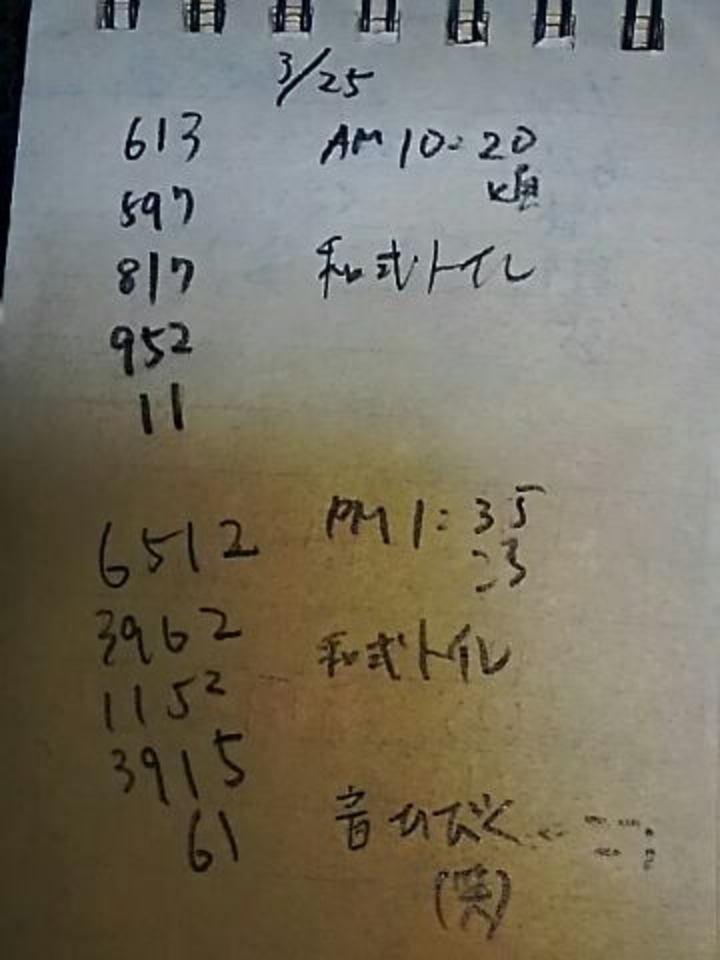 3/25
613 AM 10:20
597 頃
817 和式トイレ
952
11
6512 PM 1:35
3962 ころ
1152 和式トイレ
3915
61 音ひびく
(笑)